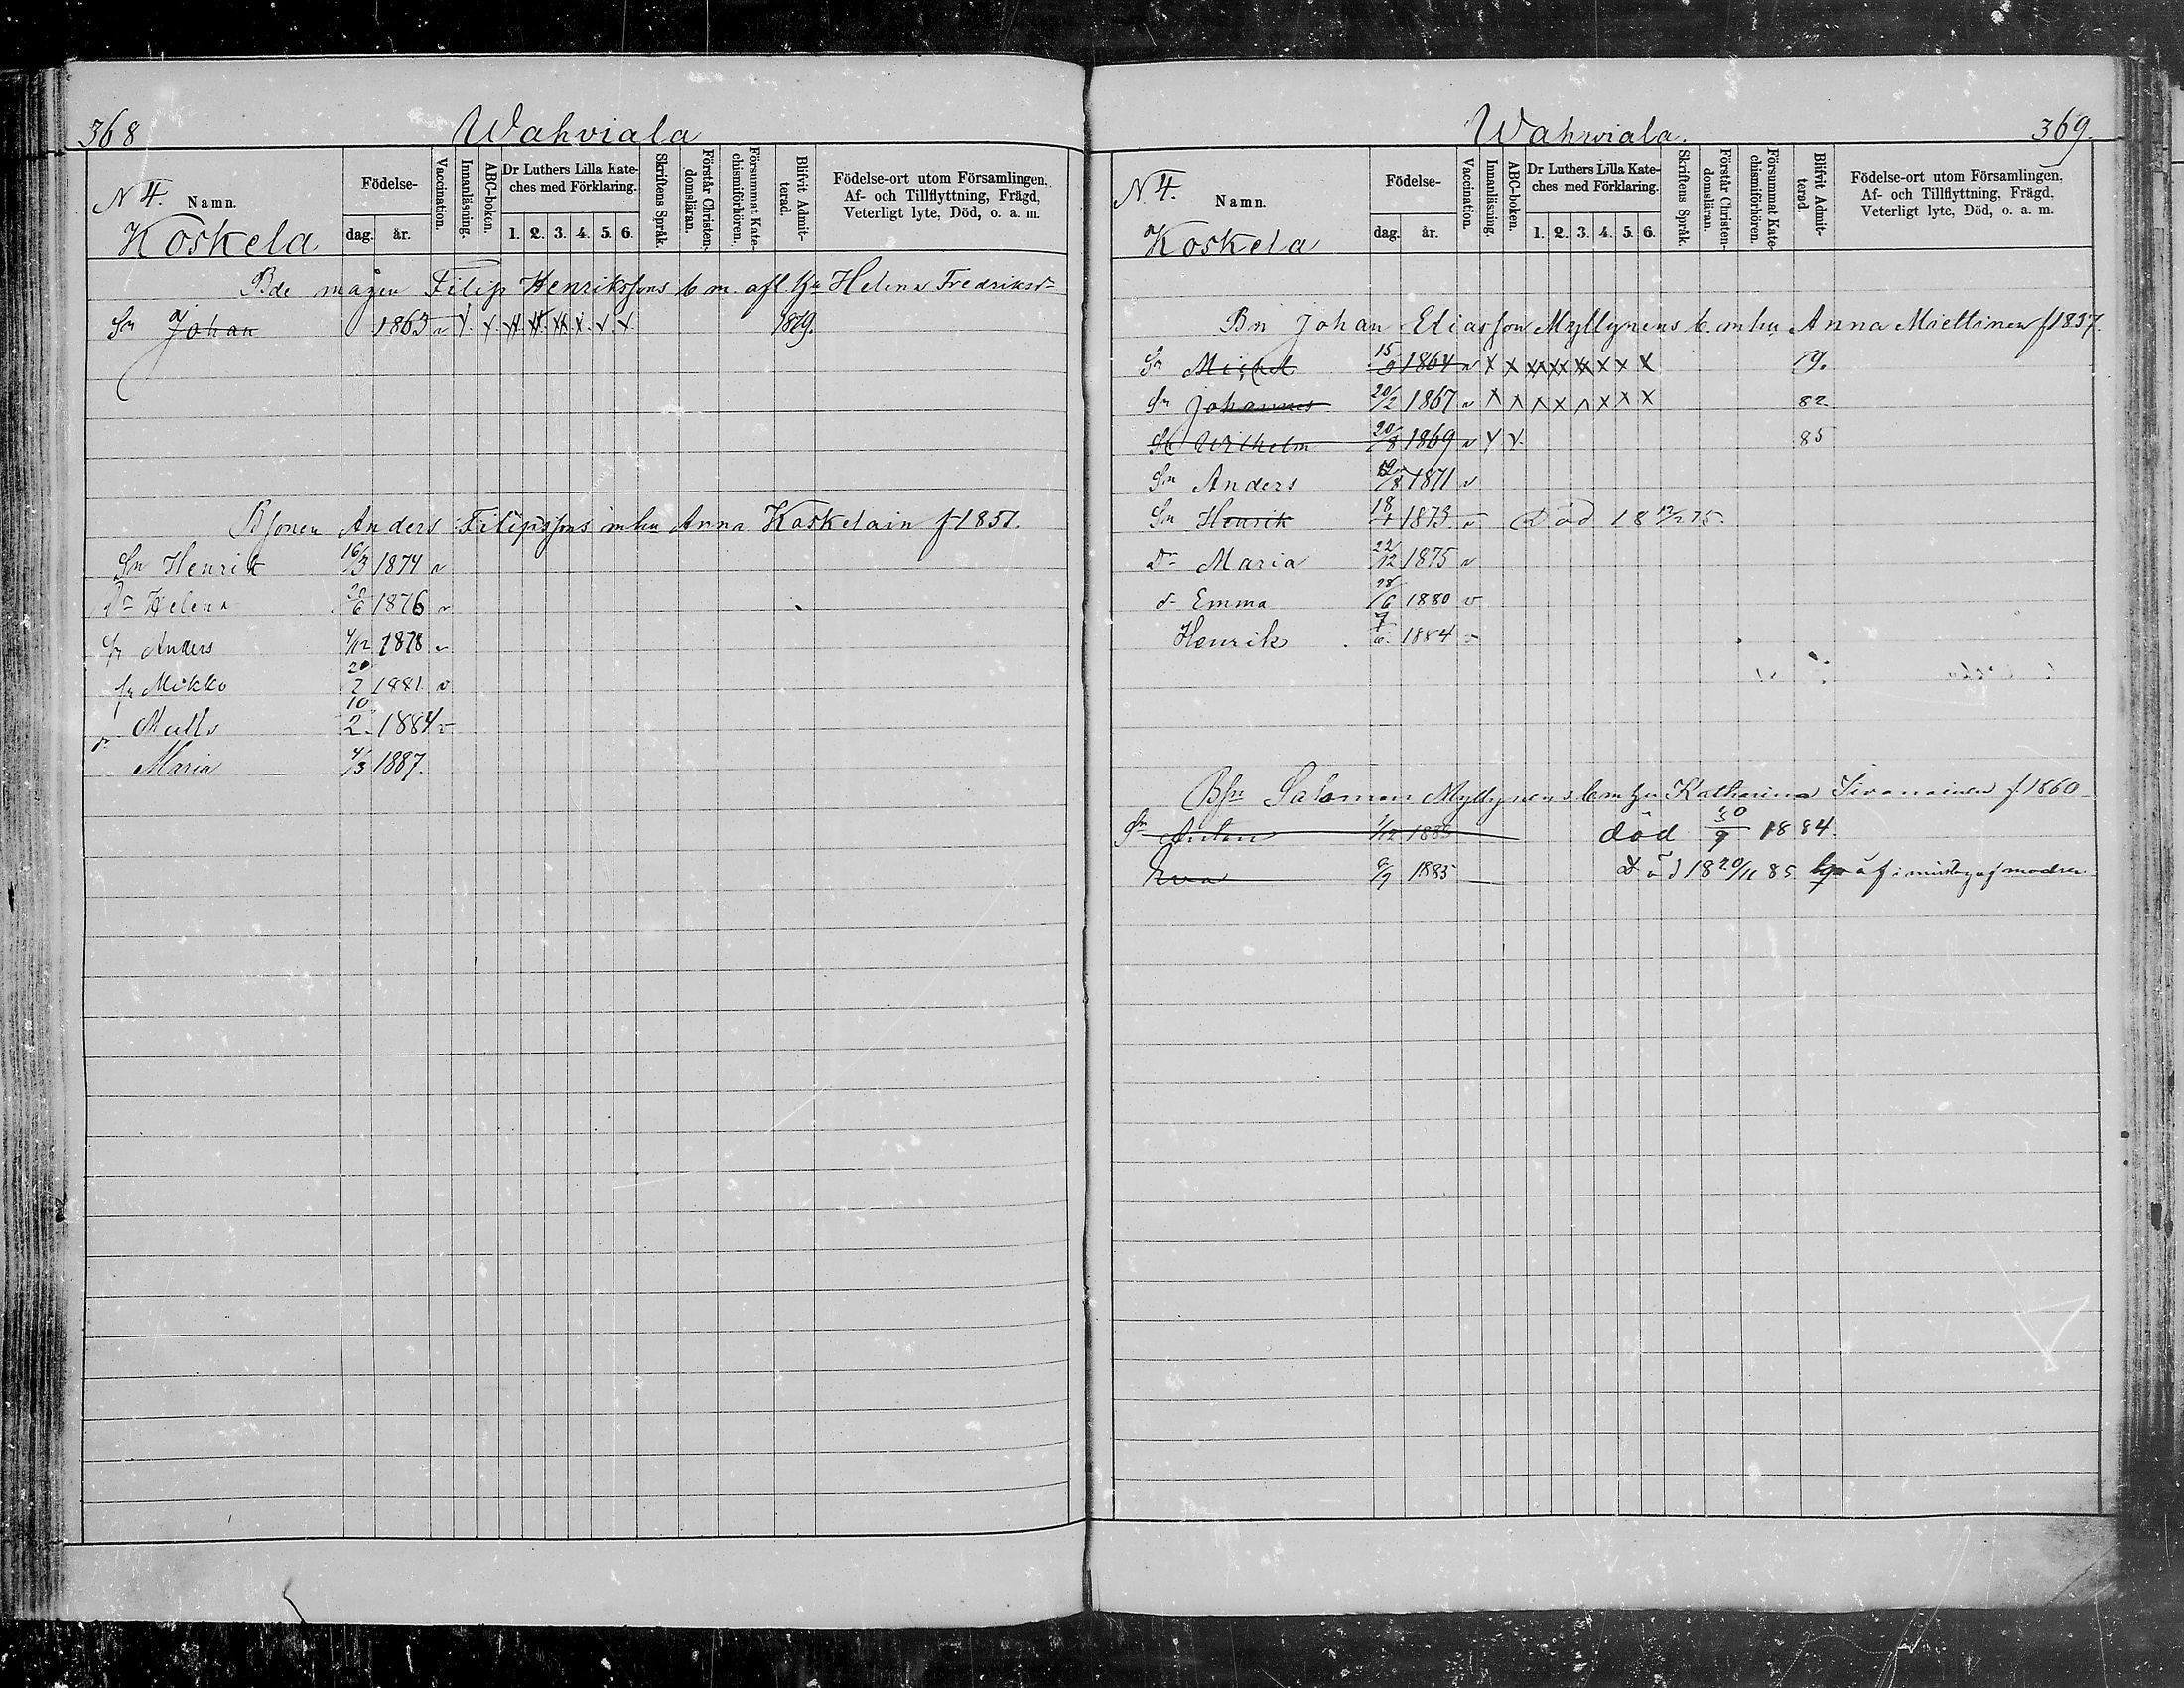 368 Wahviala
N 4. Namn. Födelse- dag. år. Vaccination. Innanläsning. ABC-boken. Dr Luthers Lilla Kateches med Förklaring. 1. 2. 3. 4. 5. 6. Skriftens Språk. Förstår Christendomsläran. Försummat Katechismiförhören. Blifvit Admitterad. Födelse-ort utom Församlingen, Af- och Tillflyttning, Frägd, Veterligt lyte, Död, o. a. m.
Koskela
Bde mågen Filip Henrikssons b m. afl. hu Helena Fredriksdr
Sn Johan 1863 v x x x x x x x x 1879.
Bsonen Anders Filipssons m hu Anna Koskelain f 1851.
Sn Henrik 16/3 1874 v
Dr Helena 20/6 1876 v
Sn Anders 4/12 1878 v
Sn Mikko 20/2 1881 v
Matts 10/2 1884 v
dr Maria 4/3 1887.
Wahwiala. 369.
N. 4. Namn. Födelse- dag. år. Vaccination. Innanläsning. ABC-boken. Dr Luthers Lilla Kateches med Förklaring. 1. 2. 3. 4. 5. 6. Skriftens Språk. Förstår Christendomsläran. Försummat Katechismiförhören. Blifvit Admitterad. Födelse-ort utom Församlingen, Af- och Tillflyttning, Frägd, Veterligt lyte, Död, o. a. m.
Koskela
Bn Johan Eliasson Myllynens b. m hu Anna Miettinen f 1837.
Sn Michel 15/9 1864 v x x x x x x x x 79.
Sn Johannes 20/2 1867 v x x x x x x x x 82
Sn Wilhelm 20/8 1869 v x x 85
Sn Anders 1871 v
Sn Henrik 18/1 1873 v Död 18 12/2 75.
Dr Maria 22/12 1875 v
dr Emma 28/6 1880 v
Henrik 7/6 1884 v
Bsn Salomon Myllynens b m hu Katharina Sivonainen f. 1860
Sn Anton 1/12 1883 död 30/9 1884.
Eva 6/9 1885 Död 18 20/11 85 af modren.